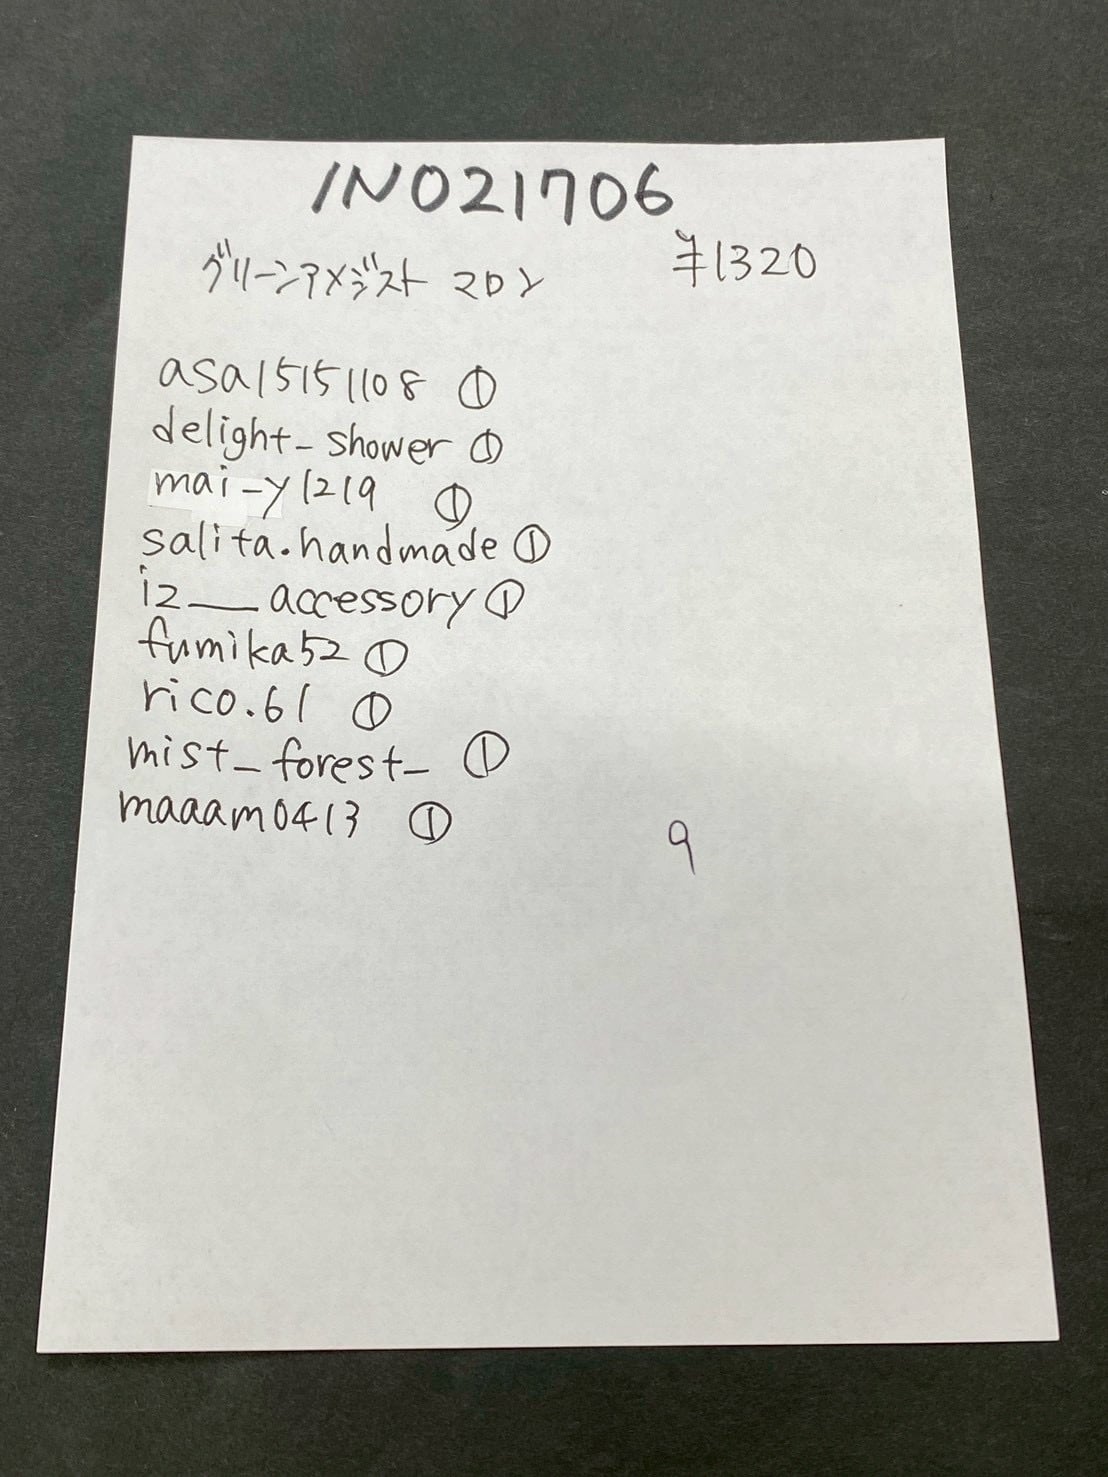 INO21706
グリーンアメジスト マロン ¥1320
asa15151108 ①
delight_shower ①
mai-y1219 ①
salita.handmade ①
iz___accessory ①
fumika52 ①
rico.61 ①
mist_forest_ ①
maaam0413 ①
9